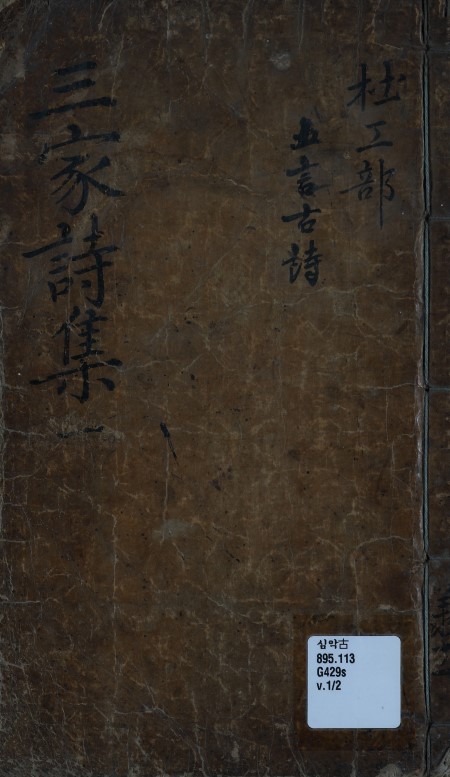 杜工部
五言古詩
三家詩集 一
심악古
895.113
G429s
v.1/2